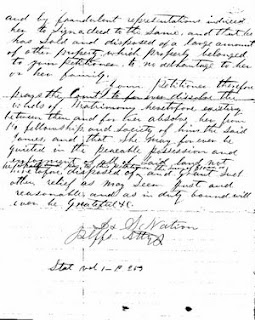 and by fraudulent representations induced
her to sign a deed to the same. and that he
has sold and disposed of a large amount
of other property which property belonged
to your petitioner. to ye
her or her family.
Your Petitioner therefore
prays the Court to for ever dissolve the
whole of Matrimony heretofore existing
between them and for her absolve her from
the fellowship and society of him the said
James and that She may for ever be
quieted in the peaceable possession and
said land not
heretofore disposed of and grant Such
other relief as may Seem Just and
reasonable and as in duty bound will
ever be Grateful &c.
Watson
Plffs Atty
Stat vol 1- P 253